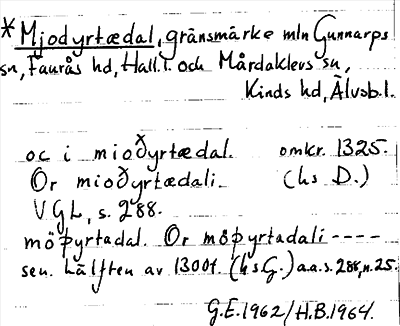 *Mjodyrtædal, gränsmärke mln Gunnarps
sn, Faurås hd, Hall.l. och Mårdaklevs sn,
Kinds hd, Älvsb.l.
oc i mioðyrtædal. omkr. 1325.
Or mioðyrtædali. (hs D.)
VGL, s. 288.
möþyrtadal. Or möþyrtadali ----
sen. hälften av 1300t. (hs G.) a.a.s. 288, n. 25.
G.E. 1962/H.B. 1964.